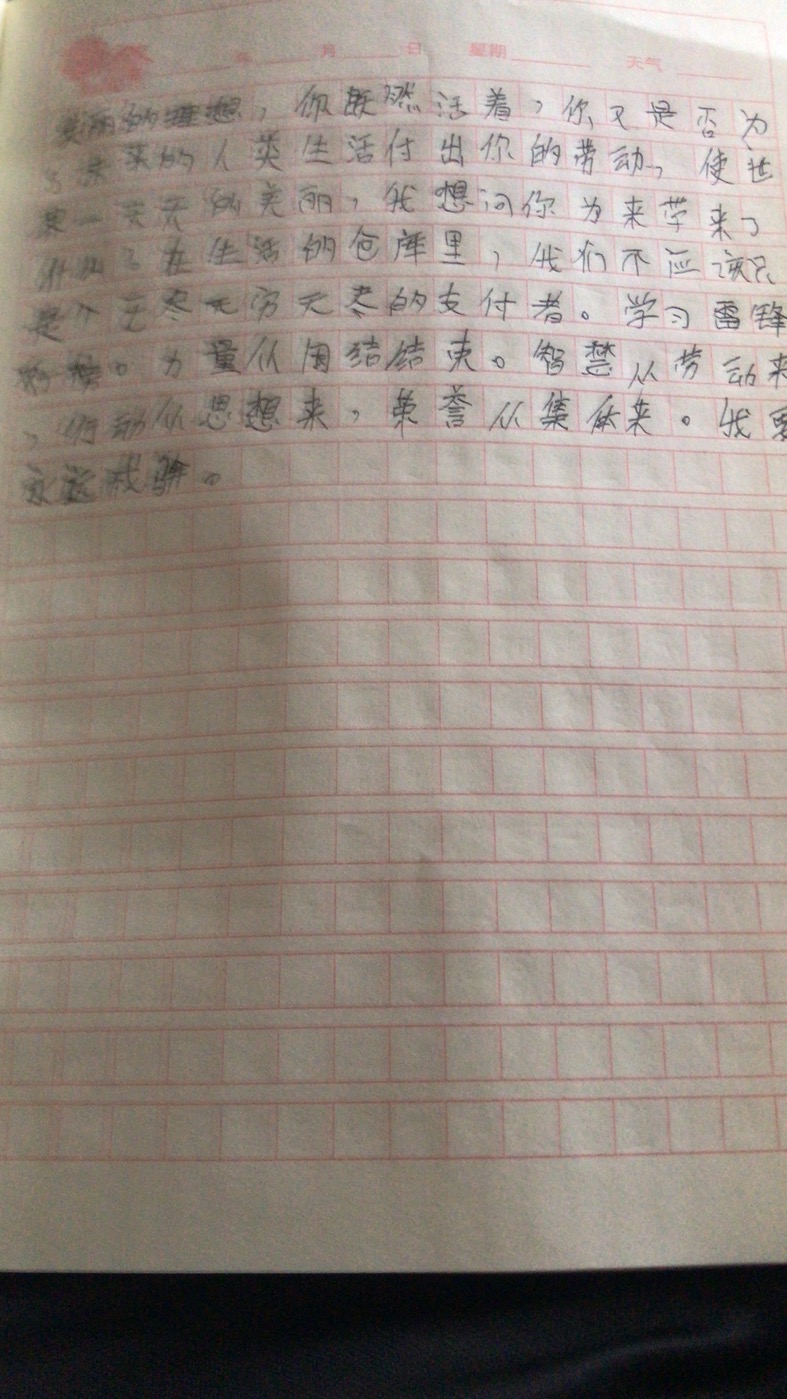 年 月 日 星期 天气
美丽的理想，你既然活着，你又是否为
了未来的人类生活付出你的劳动，使世
界一天天的美丽，我想问你为来带来了
什么？在生活的仓库里，我们不应该只
是个无尽无穷无尽的支付者。学习雷锋
榜样。力量从团结结来。智慧从劳动来
，行动从思想来，荣誉从集体来。我要
永远戒骄。